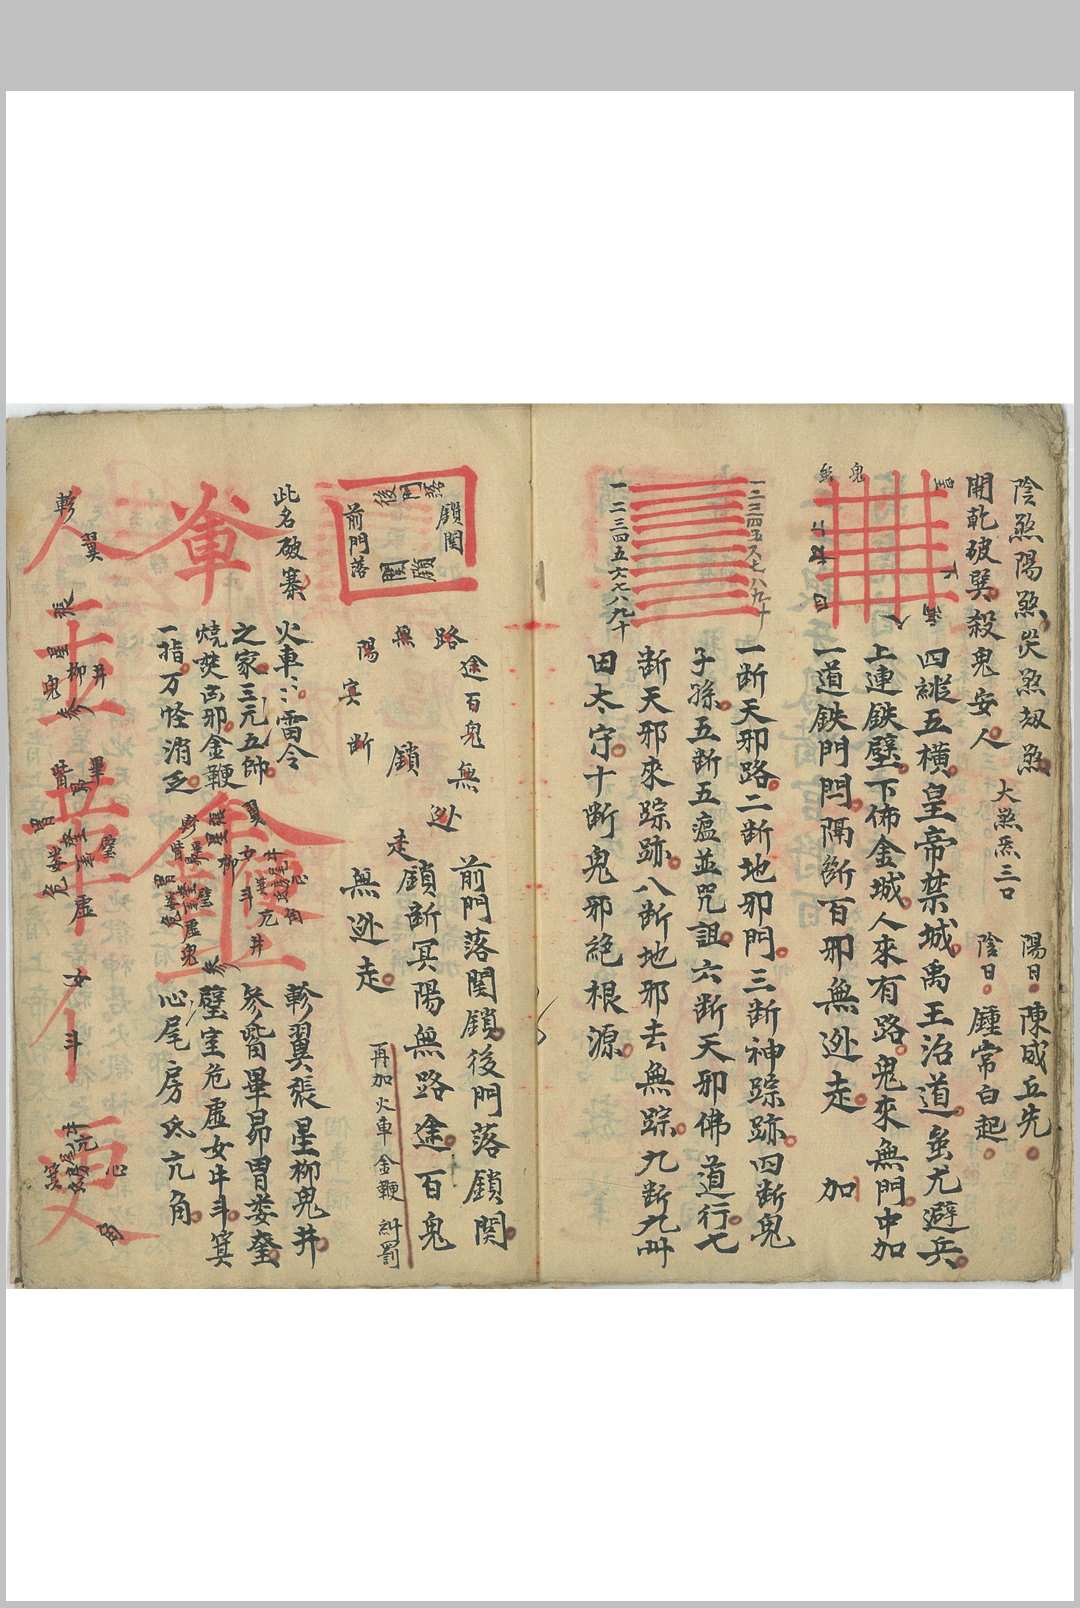 陰煞陽煞災煞刼煞
大煞炁三口
陽日。陳成丘先。
陰日。鍾常白起。
開乾破巽殺鬼安人
四縱五橫。皇帝禁城。禹王治道。蚩尤避兵。
上連鉄壁。下佈金城。人來有路。鬼來無門。中加
一道鉄門閂。隔斷百邪無迯走。 加
一二三四五六七八九十
一断天邪路。二断地邪門。三断神踪跡。四断鬼
子孫。五断五瘟並咒詛。六断天邪佛道行。七
断天邪來踪跡。八断地邪去無踪。九断九州
田太守。十断鬼邪絕根源。
一二三四五六七八九十
鎖関
前門落
路
途百鬼無
迯
走
鎖
無
陽
冥
断
前門落関鎖。後門落鎖関。
鎖断冥陽無路途。百鬼
無迯走。
再加火車金鞭糾罰
此名破寨
火車〻〻。雷令
之家。三元五帥。
燒焚凶邪。金鞭
一指。万怪消乏。
軫翼張星柳鬼井。
參觜畢昴胃婁奎。
壁室危虛女牛斗。箕
心尾房氐亢角。
軫
翼
張
星
柳
井
鬼
參
觜
畢
胃
婁
危
壁
虛
女
斗
亢
箕
心
角